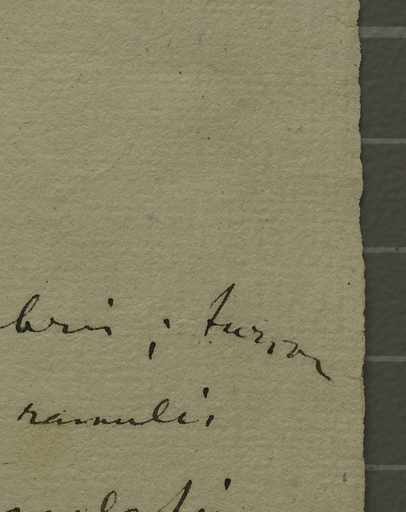 bris ; turion
ramulis